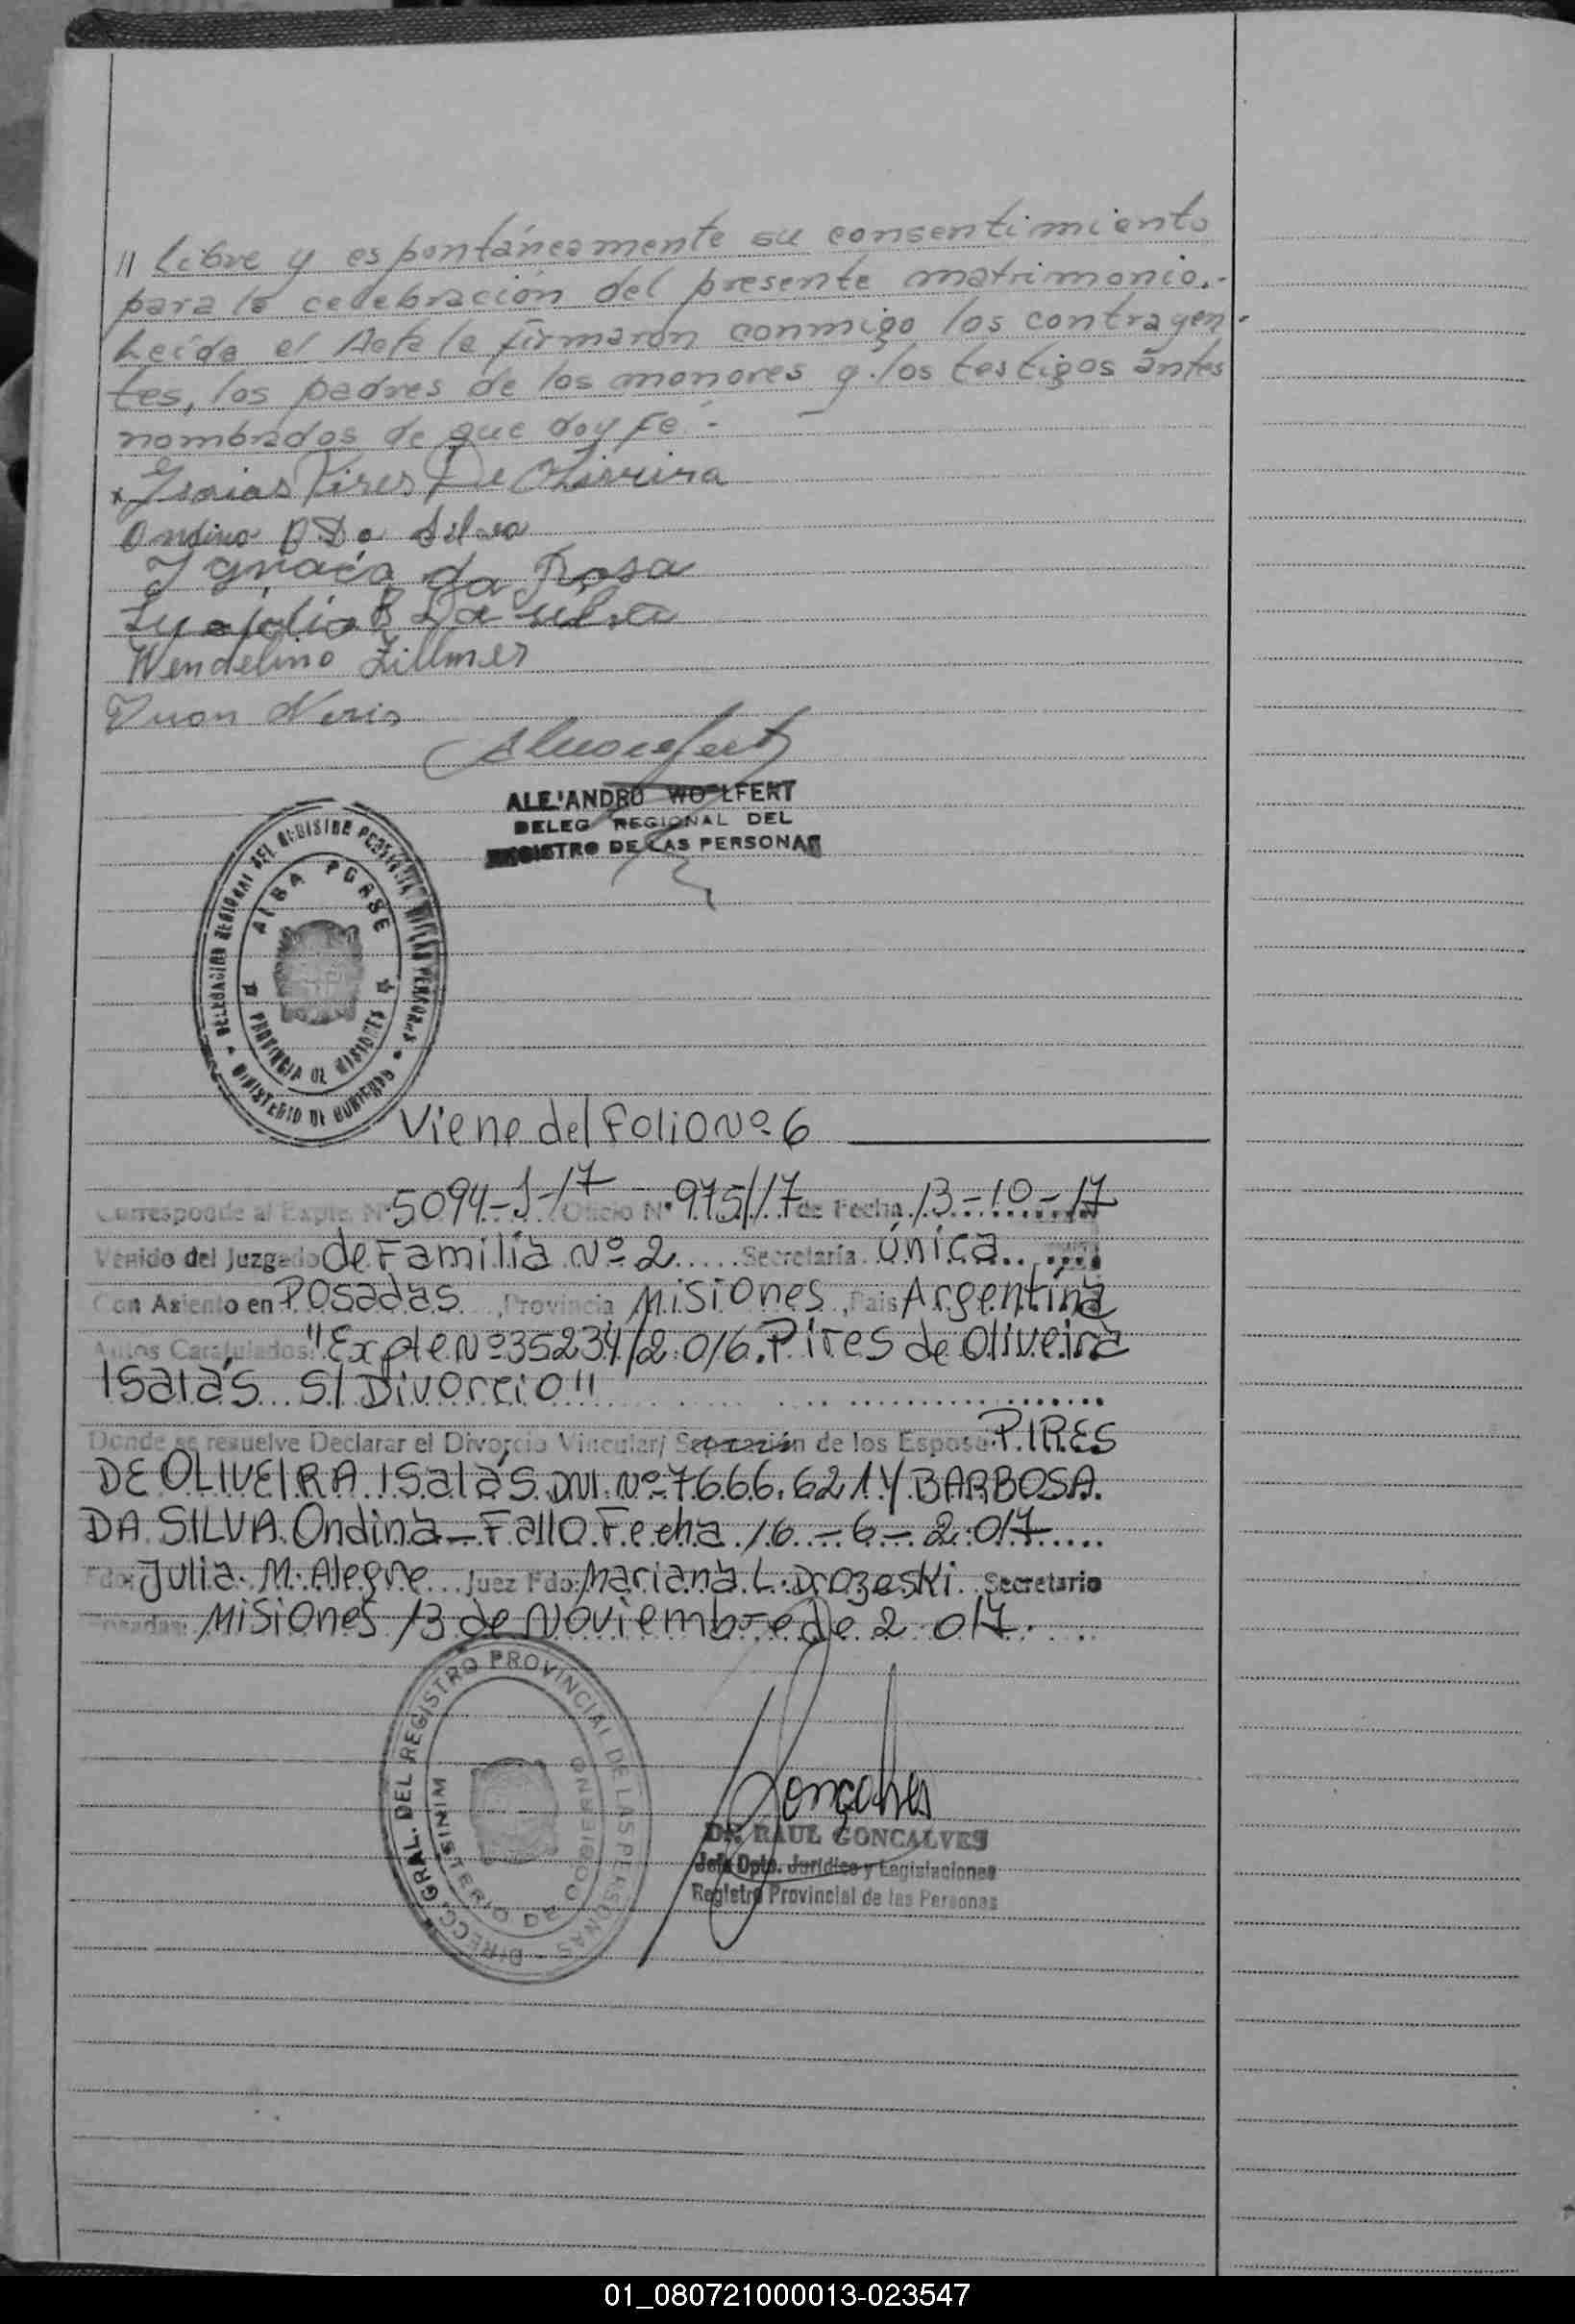 // libre y espontáneamente su consentimiento
para la celebración del presente matrimonio.-
Leída el Acta la firmaron conmigo los contrayen-
tes, los padres de los menores y los testigos antes
nombrados de que doy fe.-
x Isaias Pires De Oliveira
Ondina B Da Silva
Ignacia da Rosa
B Da Silva
Wendelino Zillmer
Juan Neris
ALEJANDRO WOLFERT
DELEG REGIONAL DEL
REGISTRO DE LAS PERSONAS
DELEGACION REGIONAL DEL REGISTRO PROVINCIAL DE LAS PERSONAS
MINISTERIO DE GOBIERNO
ALBA POSSE
PROVINCIA DE MISIONES
Viene del Folio Nº 6
Corresponde al Expte. Nº 5094-J-17 Oficio Nº 975/17 de Fecha 13-10-17
Venido del Juzgado de Familia Nº 2 Secretaría única
Con Asiento en Posadas, Provincia Misiones, Pais Argentina
Autos Caratulados: "Expte Nº 35234/2.016. Pires de Oliveira
Isaías S/ Divorcio"
Donde se resuelve Declarar el Divorcio Vincular/ Separación de los Esposos PIRES
DE OLIVEIRA Isaías DNI. Nº 7.666.621 Y BARBOSA
DA SILVA Ondina - Fallo Fecha 16-6-2.017
Fdo: Julia. M. Alegre Juez Fdo: Mariana L. Drozeski Secretario
Posadas: Misiones 13 de Noviembre de 2.017.
DIRECC. GRAL. DEL REGISTRO PROVINCIAL DE LAS PERSONAS
MINISTERIO DE GOBIERNO
Gonçalves
DR. RAUL GONCALVES
Jefe Dpto. Jurídico y Legislaciones
Registro Provincial de las Personas
01_080721000013-023547